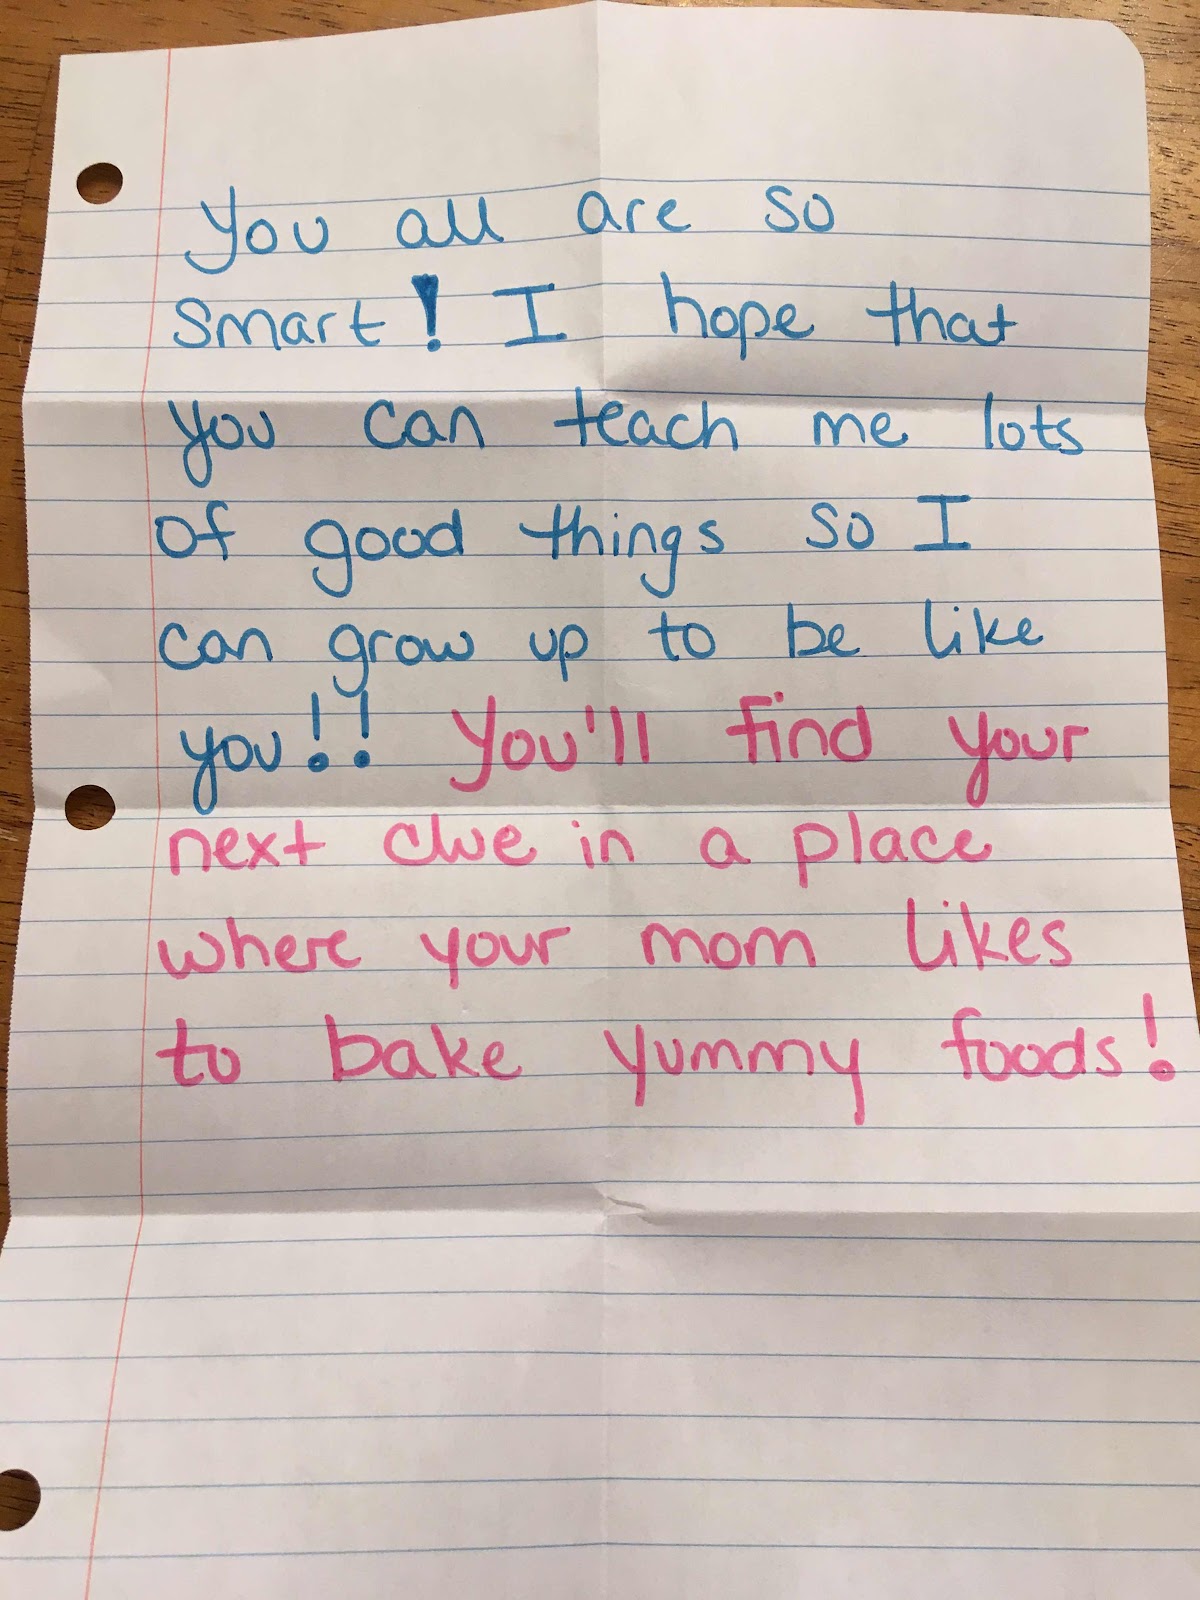 You all are so
smart! I hope that
you can teach me lots
of good things so I
can grow up to be like
you!! You'll find your
next clue in a place
where your mom likes
to bake yummy foods!